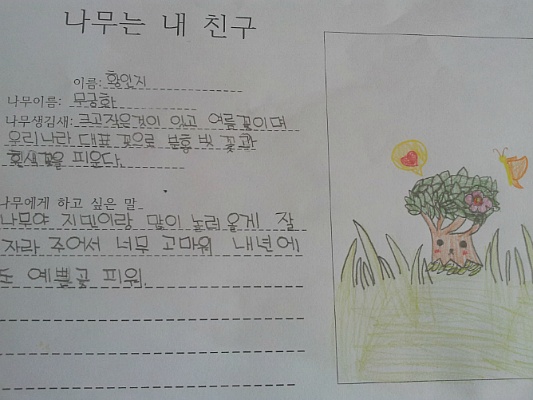 나무는 내 친구
이름: 황인지
나무이름: 무궁화
나무생김새: 크고작은것이 있고 여름꽃이며
우리나라 대표 꽃으로 보통 빗 꽃과
흰색꽃을 피운다.
나무에게 하고 싶은 말
나무야 지민이랑 많이 놀러올게 잘
자라 주어서 너무 고마워 내년에
도 예쁜꽃 피워.